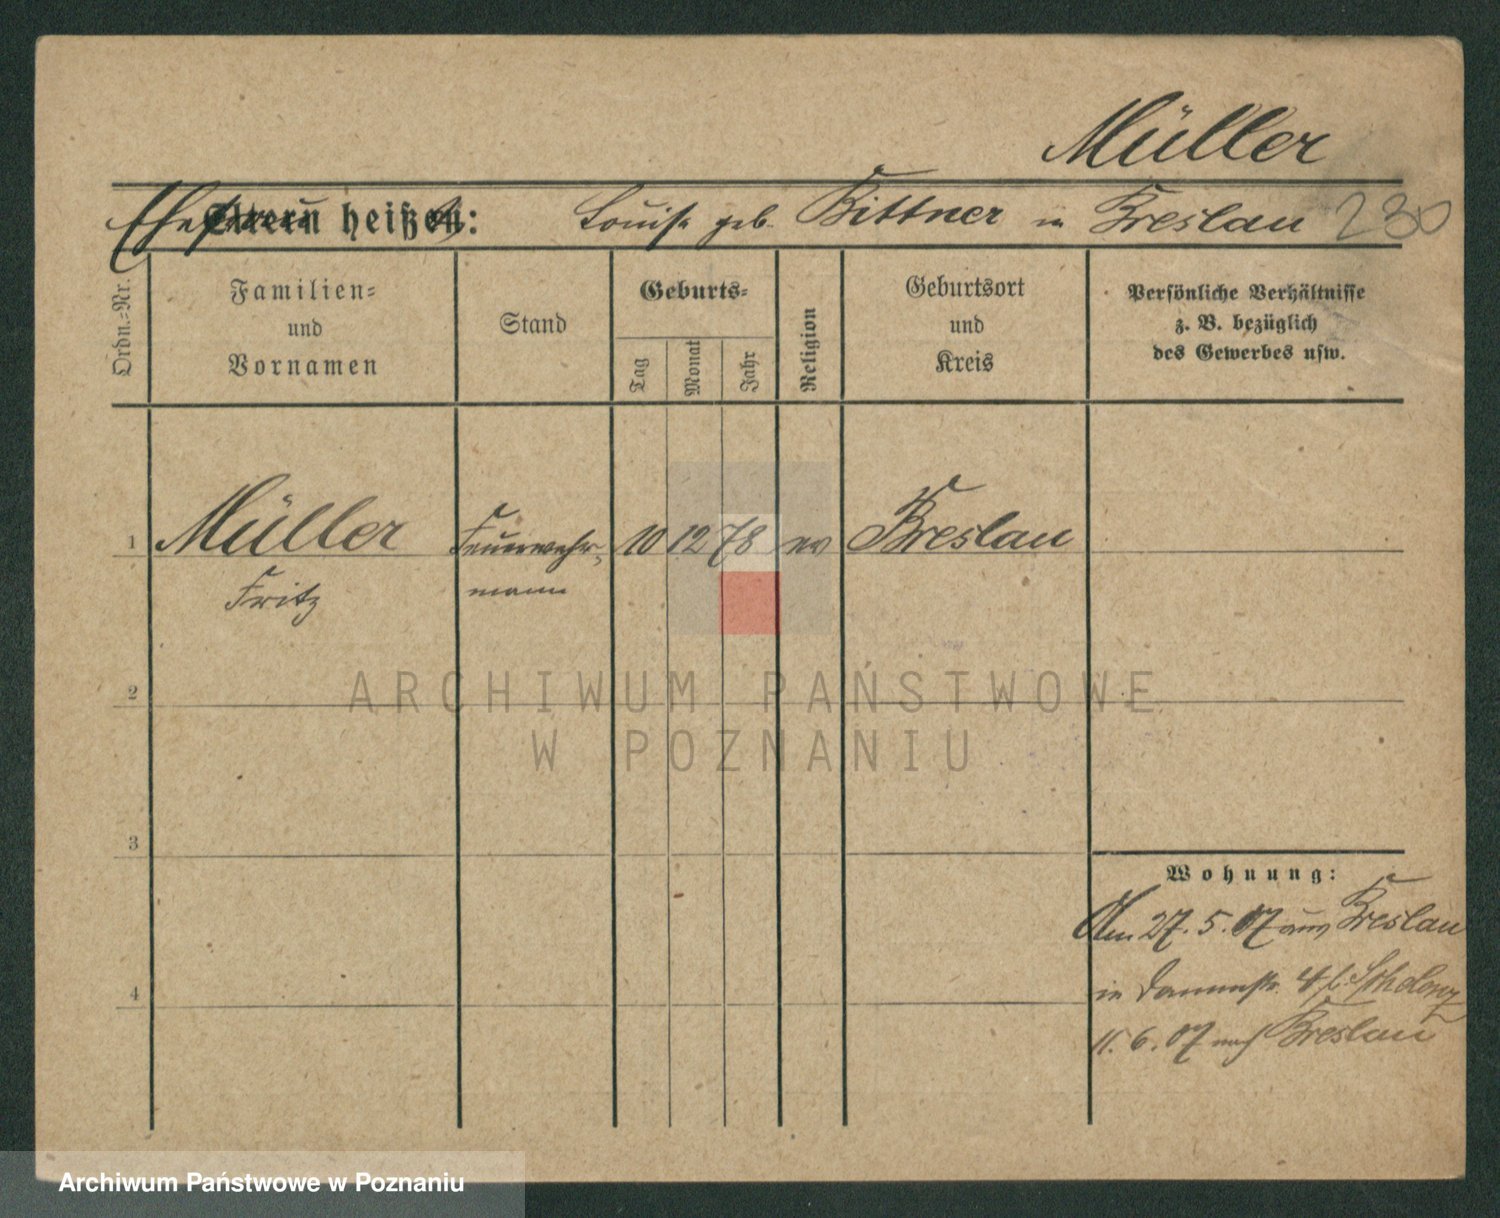 Müller
Ehefrau heißt: Louise geb. Bittner in Breslau 230
Ordn.-Nr.
Familien-
und
Vornamen
Stand
Geburts-
Tag
Monat
Jahr
Religion
Geburtsort
und
Kreis
Persönliche Verhältnisse
z. B. bezüglich
des Gewerbes usw.
1 Müller Feuerwehr- 10 12 78 ev Breslau
Fritz mann
2
ARCHIWUM PAŃSTWOWE
W POZNANIU
3
Wohnung:
Am 27. 5. 07 aus Breslau
in Dammstr. 4
4
11. 6. 07 nach Breslau
Archiwum Państwowe w Poznaniu